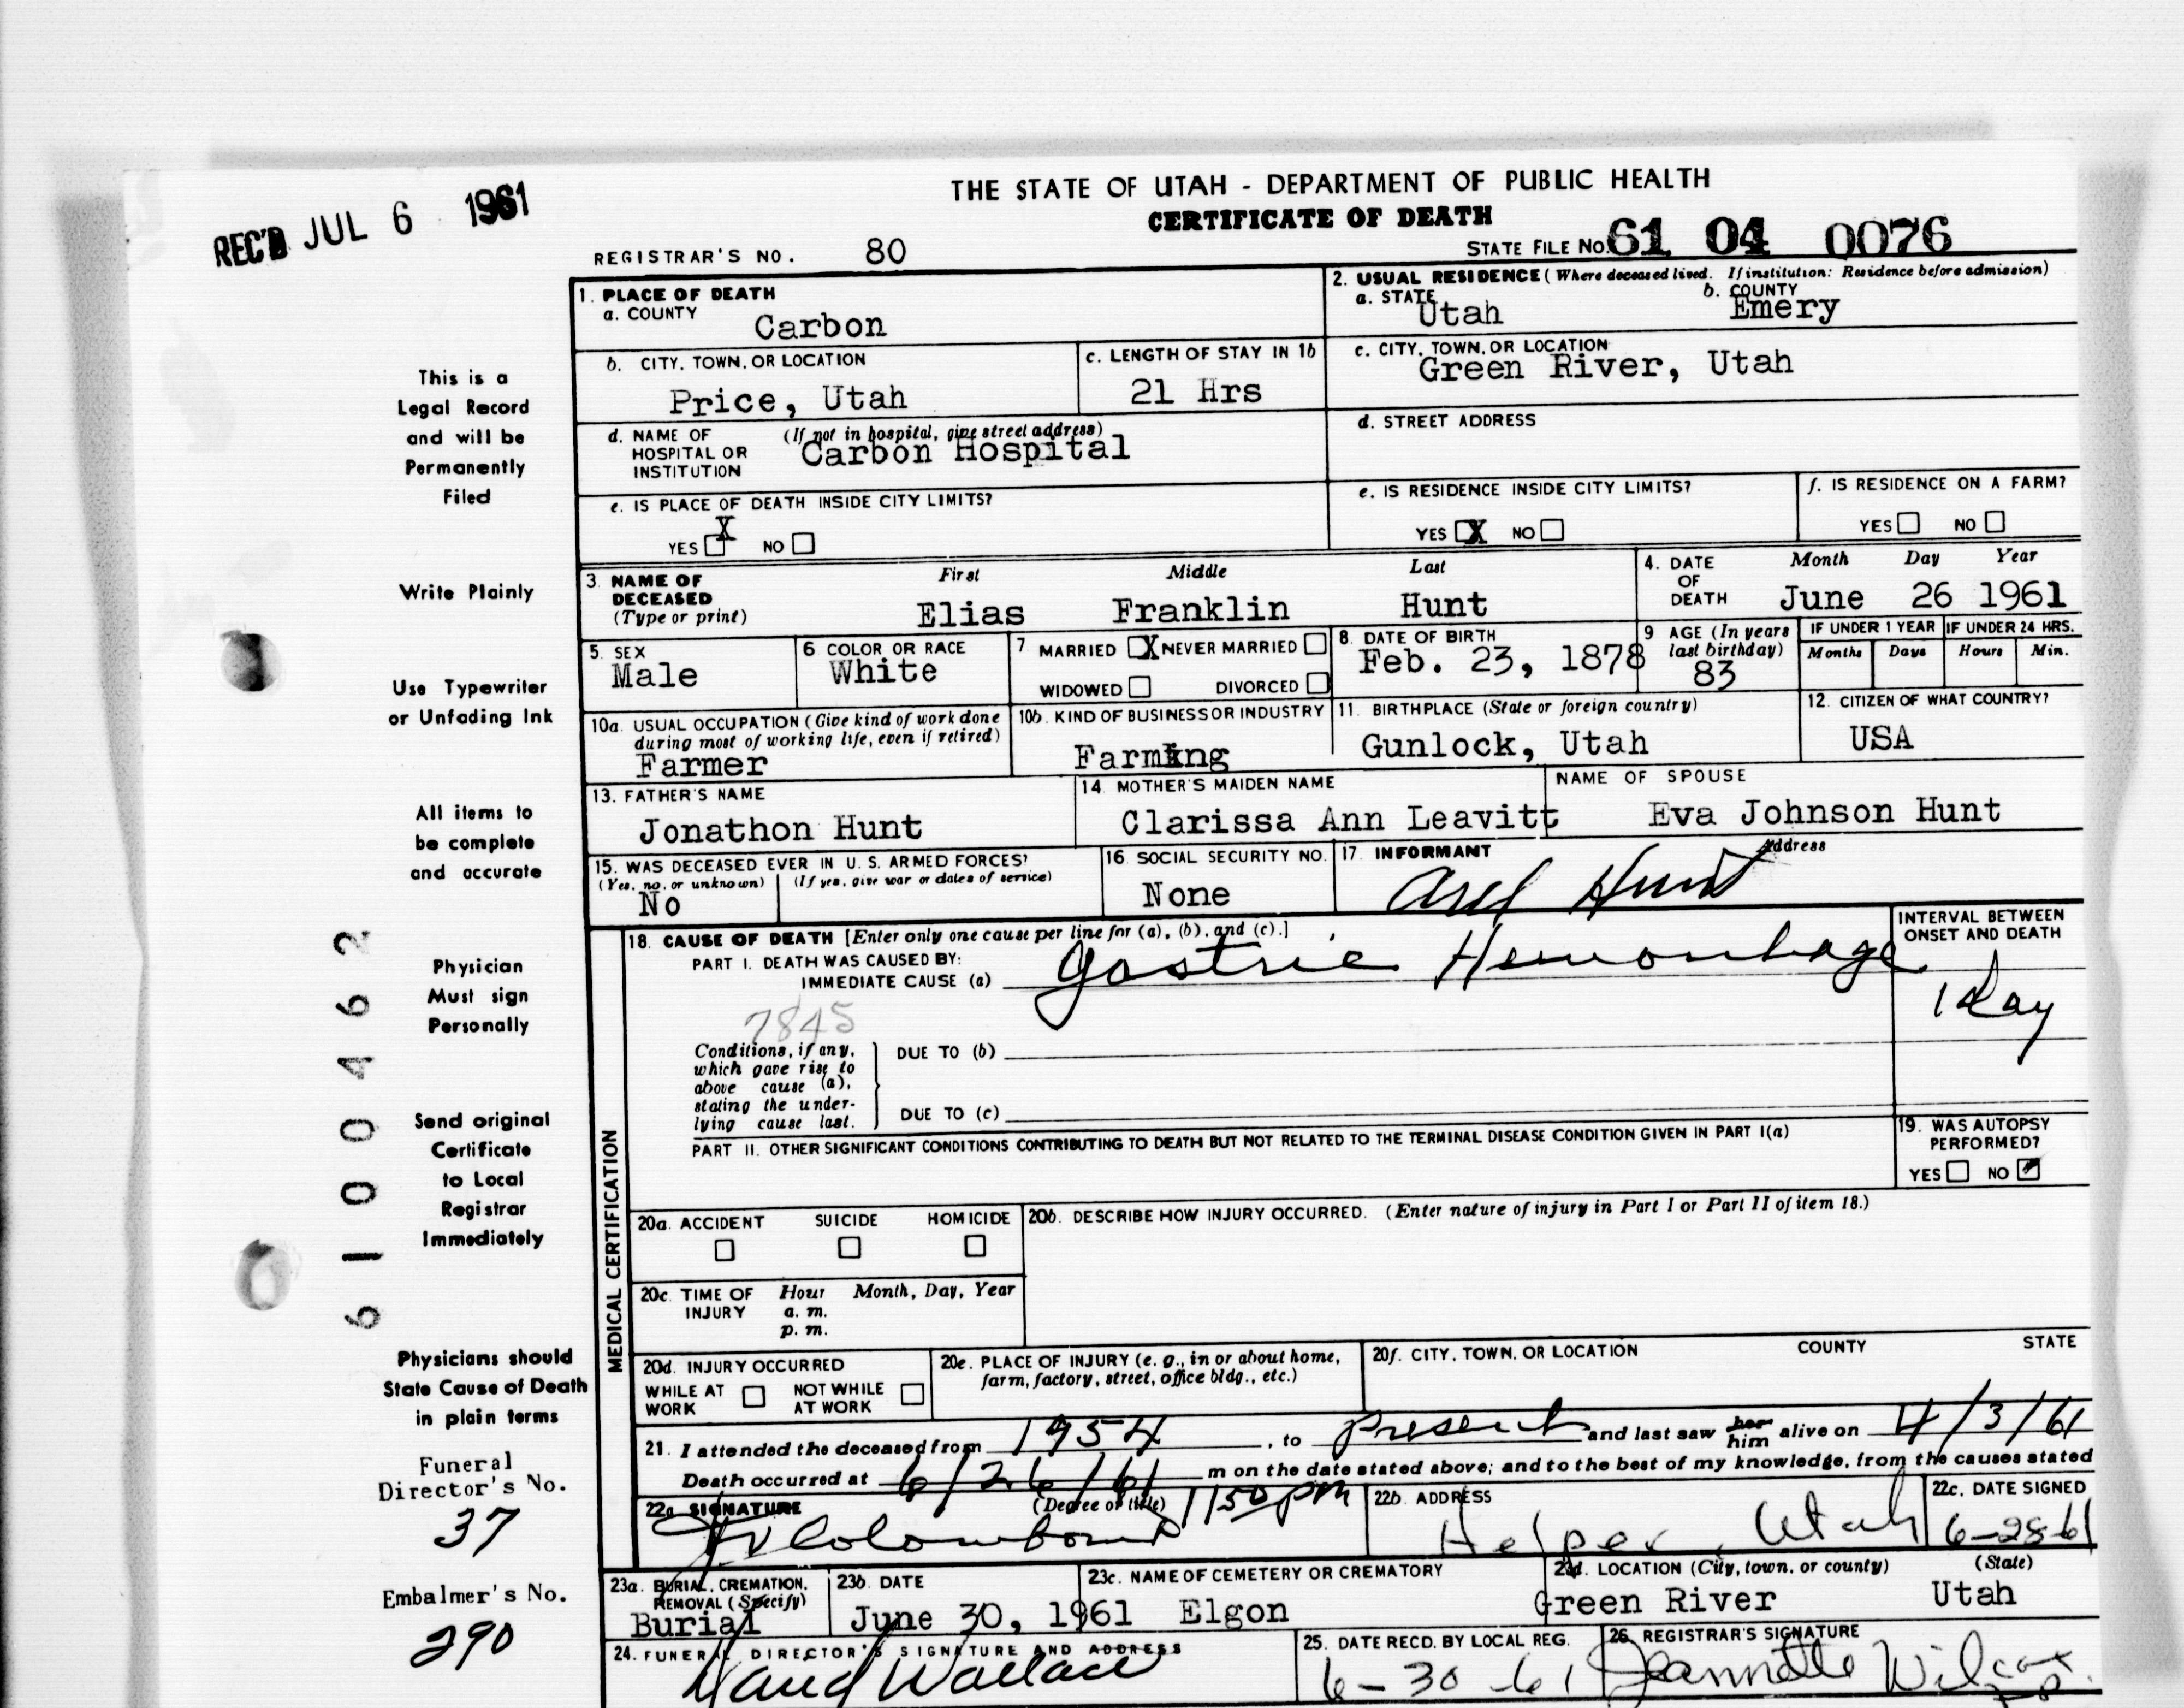 THE STATE OF UTAH - DEPARTMENT OF PUBLIC HEALTH
CERTIFICATE OF DEATH
REC'D JUL 6 1961
REGISTRAR'S NO. 80
STATE FILE NO. 61 04 0076
1. PLACE OF DEATH
a. COUNTY
Carbon
2. USUAL RESIDENCE (Where deceased lived. If institution: Residence before admission)
a. STATE Utah b. COUNTY Emery
b. CITY, TOWN, OR LOCATION
Price, Utah
c. LENGTH OF STAY IN 1b
21 Hrs
c. CITY, TOWN, OR LOCATION
Green River, Utah
d. NAME OF HOSPITAL OR INSTITUTION (If not in hospital, give street address)
Carbon Hospital
d. STREET ADDRESS
e. IS PLACE OF DEATH INSIDE CITY LIMITS?
YES X NO
e. IS RESIDENCE INSIDE CITY LIMITS?
YES X NO
f. IS RESIDENCE ON A FARM?
YES NO
3. NAME OF DECEASED (Type or print)
First Middle Last
Elias Franklin Hunt
4. DATE OF DEATH
Month Day Year
June 26 1961
5. SEX
Male
6 COLOR OR RACE
White
7 MARRIED X NEVER MARRIED
WIDOWED DIVORCED
8. DATE OF BIRTH
Feb. 23, 1878
9 AGE (In years last birthday)
83
IF UNDER 1 YEAR IF UNDER 24 HRS.
Months Days Hours Min.
10a. USUAL OCCUPATION (Give kind of work done during most of working life, even if retired)
Farmer
10b. KIND OF BUSINESS OR INDUSTRY
Farming
11. BIRTHPLACE (State or foreign country)
Gunlock, Utah
12. CITIZEN OF WHAT COUNTRY?
USA
13. FATHER'S NAME
Jonathon Hunt
14. MOTHER'S MAIDEN NAME
Clarissa Ann Leavitt
NAME OF SPOUSE
Eva Johnson Hunt
15. WAS DECEASED EVER IN U. S. ARMED FORCES?
(Yes, no, or unknown) (If yes, give war or dates of service)
No
16. SOCIAL SECURITY NO.
None
17. INFORMANT Address
Hunt
18. CAUSE OF DEATH [Enter only one cause per line for (a), (b), and (c).]
PART I. DEATH WAS CAUSED BY:
IMMEDIATE CAUSE (a) Gastric Hemorrhage
INTERVAL BETWEEN ONSET AND DEATH
1 Day
7845
Conditions, if any, which gave rise to above cause (a), stating the underlying cause last.
DUE TO (b)
DUE TO (c)
PART II. OTHER SIGNIFICANT CONDITIONS CONTRIBUTING TO DEATH BUT NOT RELATED TO THE TERMINAL DISEASE CONDITION GIVEN IN PART I(a)
19. WAS AUTOPSY PERFORMED?
YES NO
20a. ACCIDENT SUICIDE HOMICIDE
20b. DESCRIBE HOW INJURY OCCURRED. (Enter nature of injury in Part I or Part II of item 18.)
20c. TIME OF INJURY Hour Month, Day, Year
a. m.
p. m.
20d. INJURY OCCURRED
WHILE AT WORK NOT WHILE AT WORK
20e. PLACE OF INJURY (e. g., in or about home, farm, factory, street, office bldg., etc.)
20f. CITY, TOWN, OR LOCATION COUNTY STATE
21. I attended the deceased from 1954, to Present and last saw her him alive on 4/3/61
Death occurred at 6/26/61 m on the date stated above; and to the best of my knowledge, from the causes stated
1150 pm
22a SIGNATURE (Degree or title)
22b. ADDRESS
Helper, Utah
22c. DATE SIGNED
6-28-61
23a. BURIAL, CREMATION, REMOVAL (Specify)
Burial
23b. DATE
June 30, 1961
23c. NAME OF CEMETERY OR CREMATORY
Elgon
23d. LOCATION (City, town, or county) (State)
Green River Utah
24. FUNERAL DIRECTOR'S SIGNATURE AND ADDRESS
Wallace
25. DATE RECD. BY LOCAL REG.
6-30-61
26. REGISTRAR'S SIGNATURE
Jeannette Wilcox
MEDICAL CERTIFICATION
This is a
Legal Record
and will be
Permanently
Filed
Write Plainly
Use Typewriter
or Unfading Ink
All items to
be complete
and accurate
Physician
Must sign
Personally
Send original
Certificate
to Local
Registrar
Immediately
Physicians should
State Cause of Death
in plain terms
Funeral
Director's No.
37
Embalmer's No.
290
61 00462